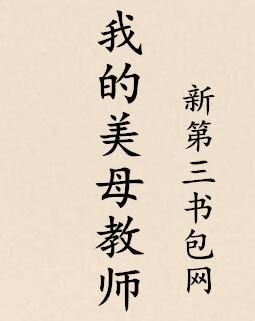 我的美母教师
新第三书包网